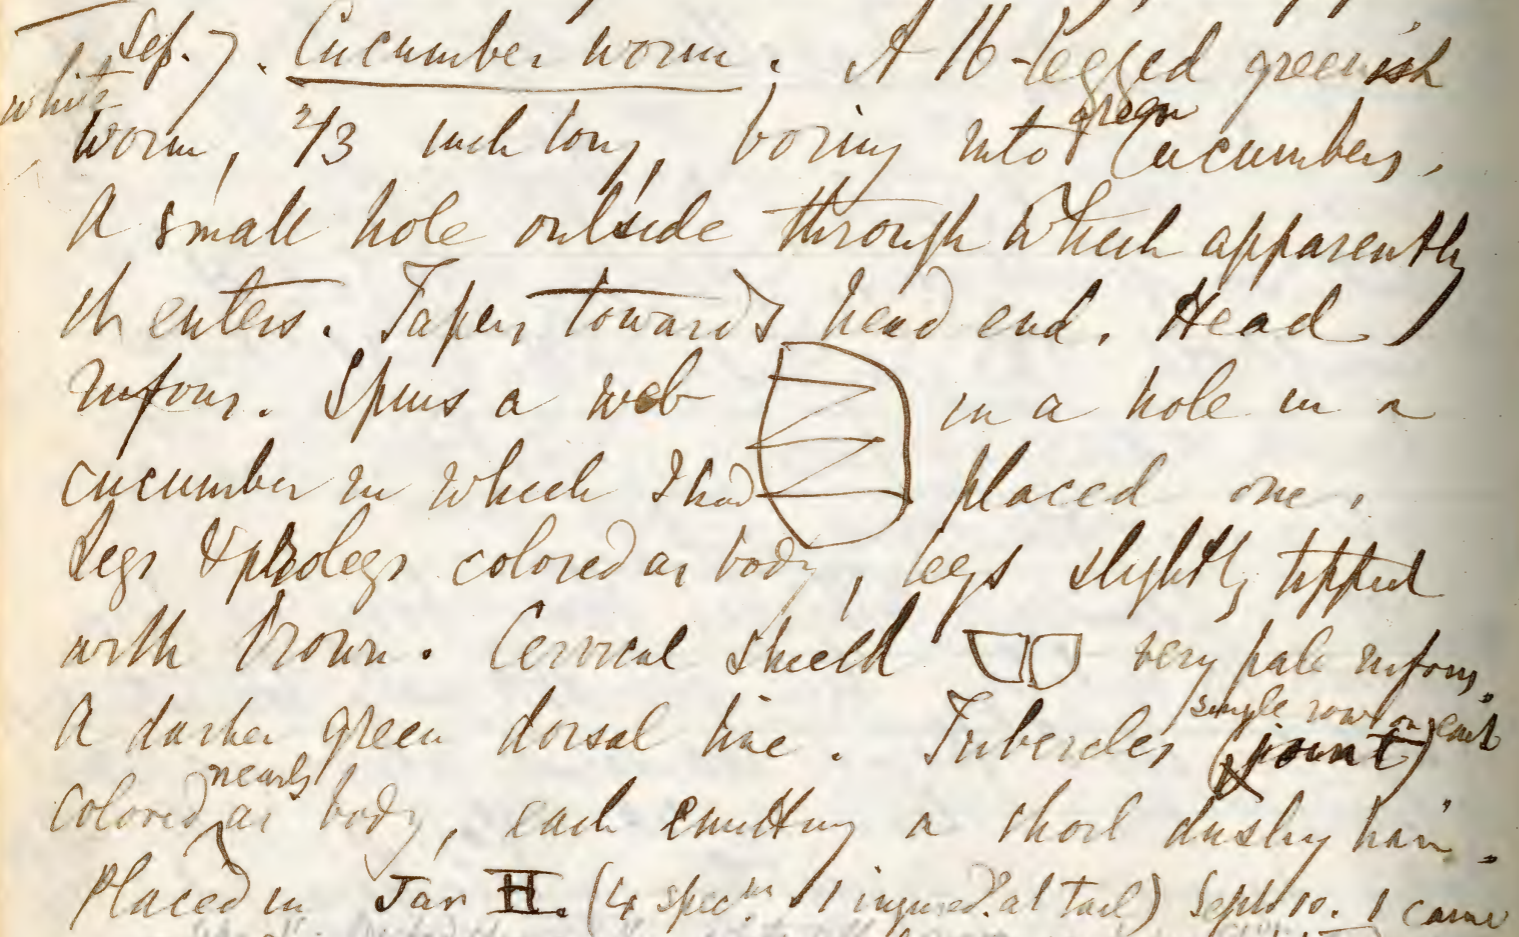 Sep. 7. Cucumber worm. A 16-legged greenish
white
green
worm, 2/3 inch long, boring into cucumbers.
A small hole outside through which apparently
it enters. Tapers towards head end. Head
rufous. Spins a web in a hole in a
cucumber in which I had placed one.
Legs & prolegs colored as body, legs slightly tipped
with brown. Cervical shield very pale rufous.
single row on each
A darker green dorsal line. Tubercles (joint)
nearly
colored as body, each emitting a short dusky hair.
Placed in Jar II. (4 specns. 1 injured at tail) Sept 10. 1 came